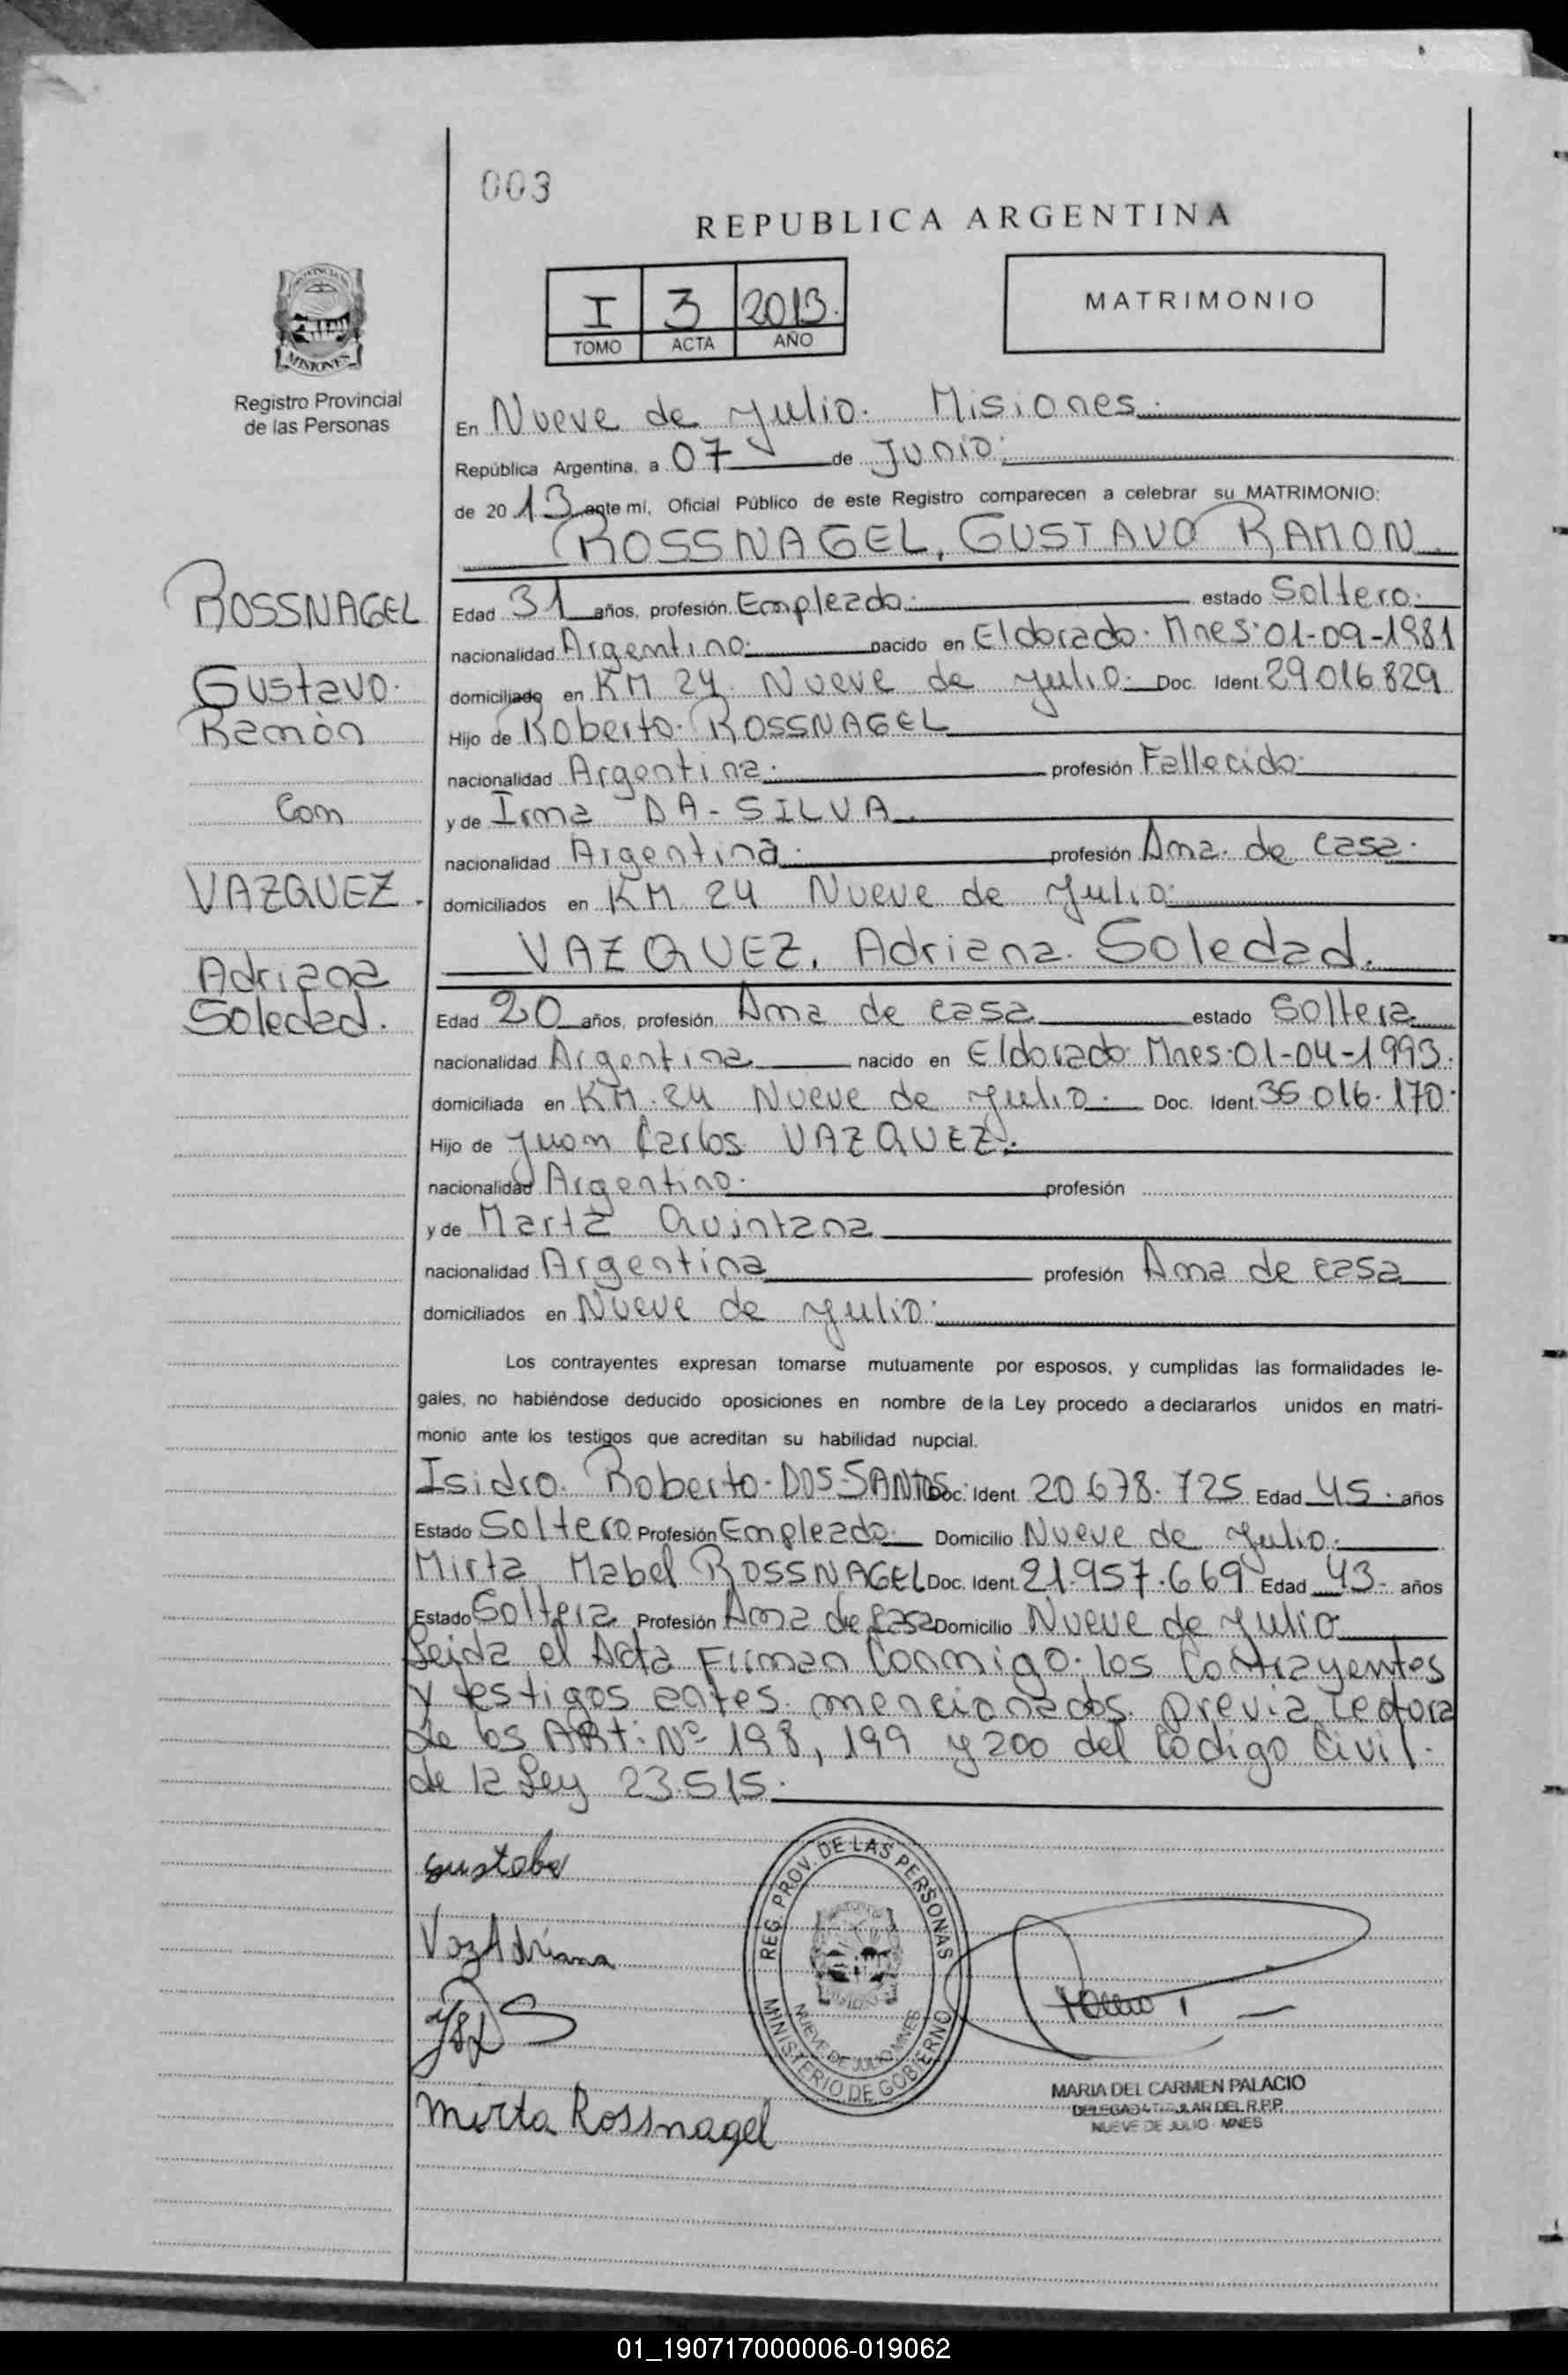 003
REPUBLICA ARGENTINA
I 3 2013.
TOMO ACTA AÑO
MATRIMONIO
PROVINCIA
MISIONES
Registro Provincial
de las Personas
En Nueve de Julio. Misiones.
República Argentina, a 07 de Junio.
de 2013 ante mi, Oficial Público de este Registro comparecen a celebrar su MATRIMONIO:
ROSSNAGEL, GUSTAVO RAMON.
ROSSNAGEL
Gustavo.
Ramón
Con
VAZQUEZ.
Adriana
Soledad.
Edad 31 años, profesión Empleado. estado Soltero.
nacionalidad Argentino. nacido en Eldorado. Mnes. 01-09-1981
domiciliado en KM 24 Nueve de Julio. Doc. Ident. 29.016.829
Hijo de Roberto. ROSSNAGEL
nacionalidad Argentina. profesión Fallecido.
y de Irma DA-SILVA.
nacionalidad Argentina. profesión Ama. de casa.
domiciliados en KM 24 Nueve de Julio.
VAZQUEZ, Adriana. Soledad.
Edad 20 años, profesión Ama de casa estado Soltera
nacionalidad Argentina nacido en Eldorado Mnes. 01-04-1993.
domiciliada en KM. 24 Nueve de Julio. Doc. Ident. 36.016.170.
Hijo de Juan Carlos VAZQUEZ.
nacionalidad Argentino. profesión
y de Marta Quintana
nacionalidad Argentina profesión Ama de casa
domiciliados en Nueve de Julio.
Los contrayentes expresan tomarse mutuamente por esposos, y cumplidas las formalidades le-
gales, no habiéndose deducido oposiciones en nombre de la Ley procedo a declararlos unidos en matri-
monio ante los testigos que acreditan su habilidad nupcial.
Isidro. Roberto. DOS-SANTOS Doc. Ident. 20.678.725 Edad 45. años
Estado Soltero Profesión Empleado Domicilio Nueve de Julio.
Mirta Mabel ROSSNAGEL Doc. Ident. 21.957.669 Edad 43- años
Estado Soltera Profesión Ama de casa Domicilio Nueve de Julio
Leida el Acta Firman Conmigo. los Contrayentes
y testigos antes mencionados previa lectora
de los ART. Nº 198, 199 y 200 del Codigo Civil.
de la Ley 23.515.
Gustabo
Vaz Adriana
REG. PROV. DE LAS PERSONAS
NUEVE DE JULIO MNES
MINISTERIO DE GOBIERNO
MARIA DEL CARMEN PALACIO
DELEGADA TITULAR DEL R.P.P.
NUEVE DE JULIO - MNES
Mirta Rossnagel
01_190717000006-019062